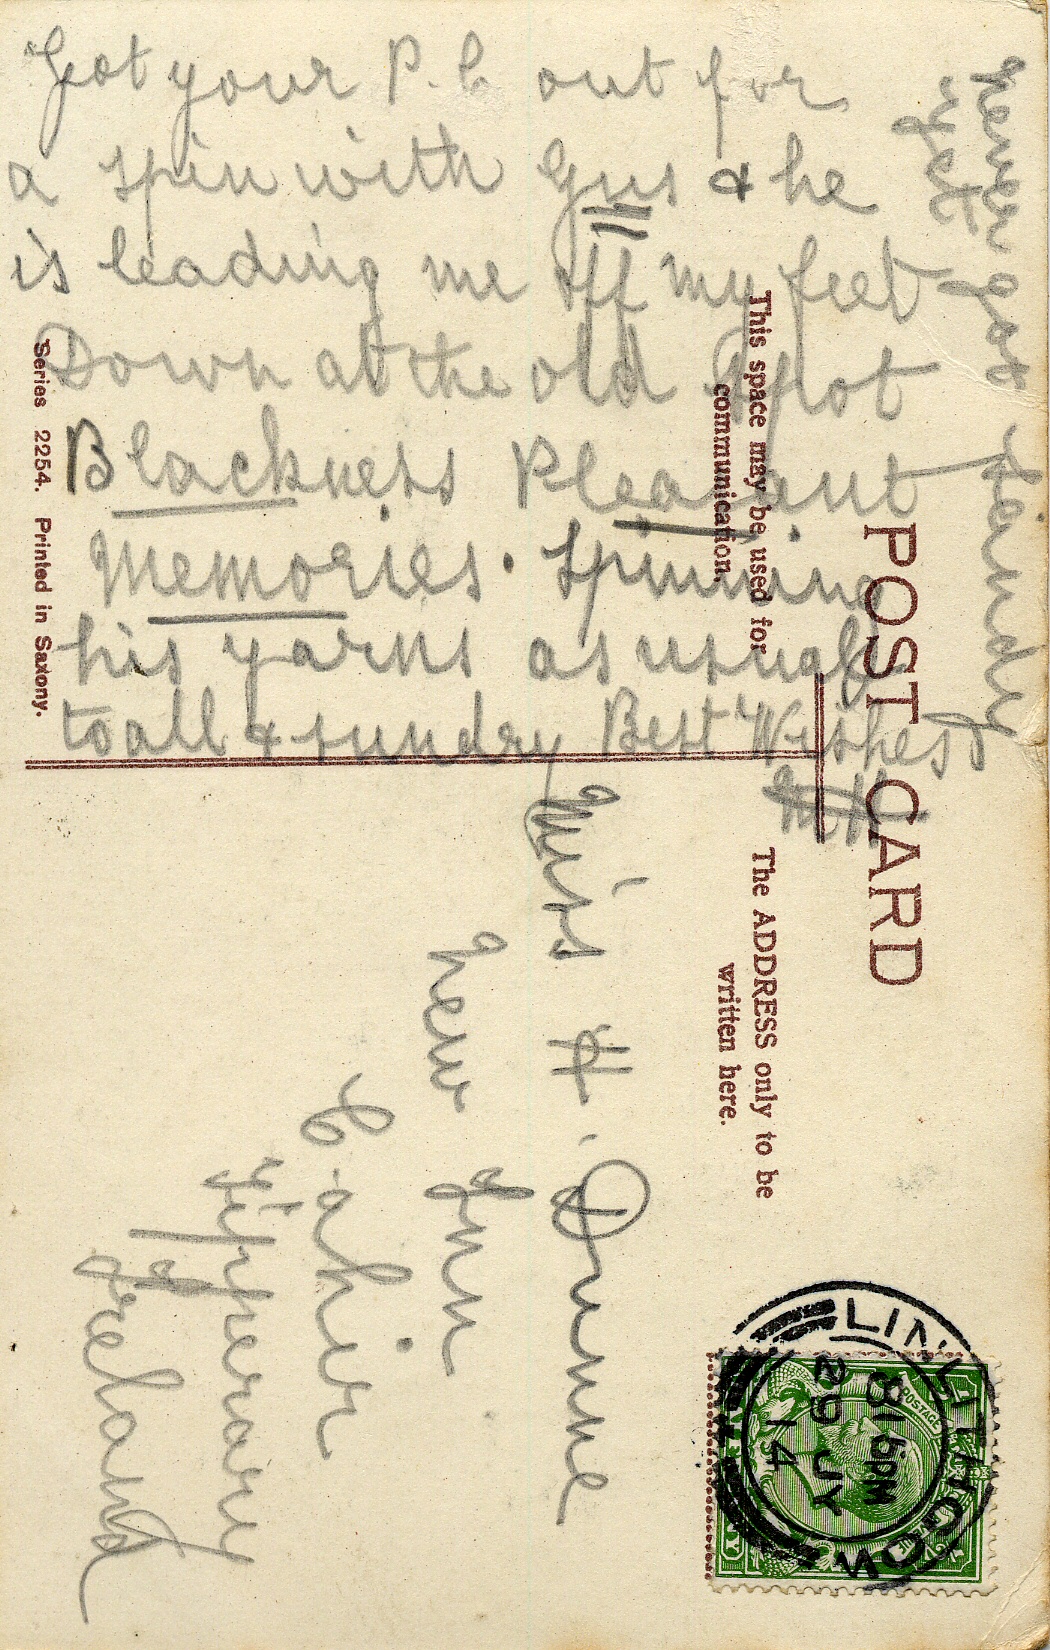 Got your P.C out for
a spin with Gus & he
is leading me off my feet
Down at the old Spot
Blackness Pleasant
Memories. Spinning
his yarns as usual
to all & sundry Best Wishes
never got Sandy
yet
POST CARD
This space may be used for
communication.
The ADDRESS only to be
written here.
Series 2254. Printed in Saxony.
Miss H. Dunne
New Inn
Cahir
Tipperary
Ireland
LINLITHGOW
815PM
29 JY
14
POSTAGE